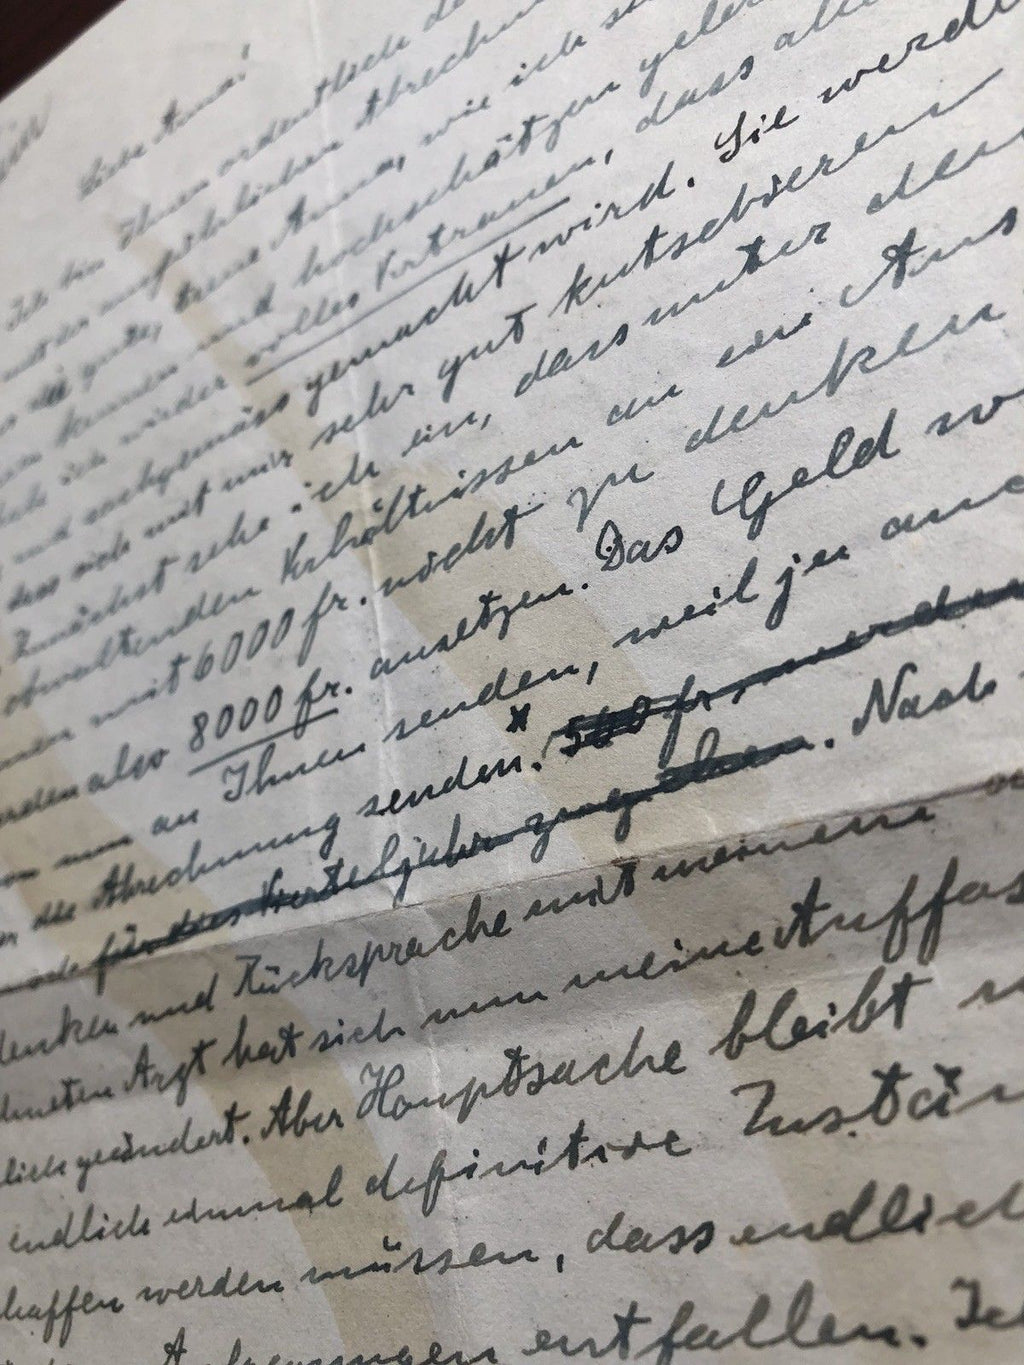 Liebe Anna!
Ich bin Ihnen ordentlich de
Abrechn
gute, treue Anna, wie ich s
kennen und hochschätzen geler
ich wieder volles Vertrauen, dass alle
und sachgemäss gemacht wird. Sie werde
dass sich mit mir sehr gut kutschieren
Zunächst sehe ich ein, dass unter den
obwaltenden Verhältnissen an ein Aus
mit 6000 fr. nicht zu denken
also 8000 fr. ansetzen. Das Geld w
nun an Ihnen senden, weil jen
die Abrechnung senden. * 500 frs werden
für dies Vierteljahr zugehen. Nach
denken und Rücksprache mit meinem
Arzt hat sich nun meine Auffas
lich geändert. Aber Hauptsache bleibt
endlich einmal definitive Zustän
haffen werden müssen, dass endlich
entfallen. Ich